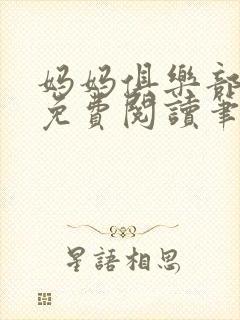 媽媽俱樂部
免費閱讀筆
星語相思